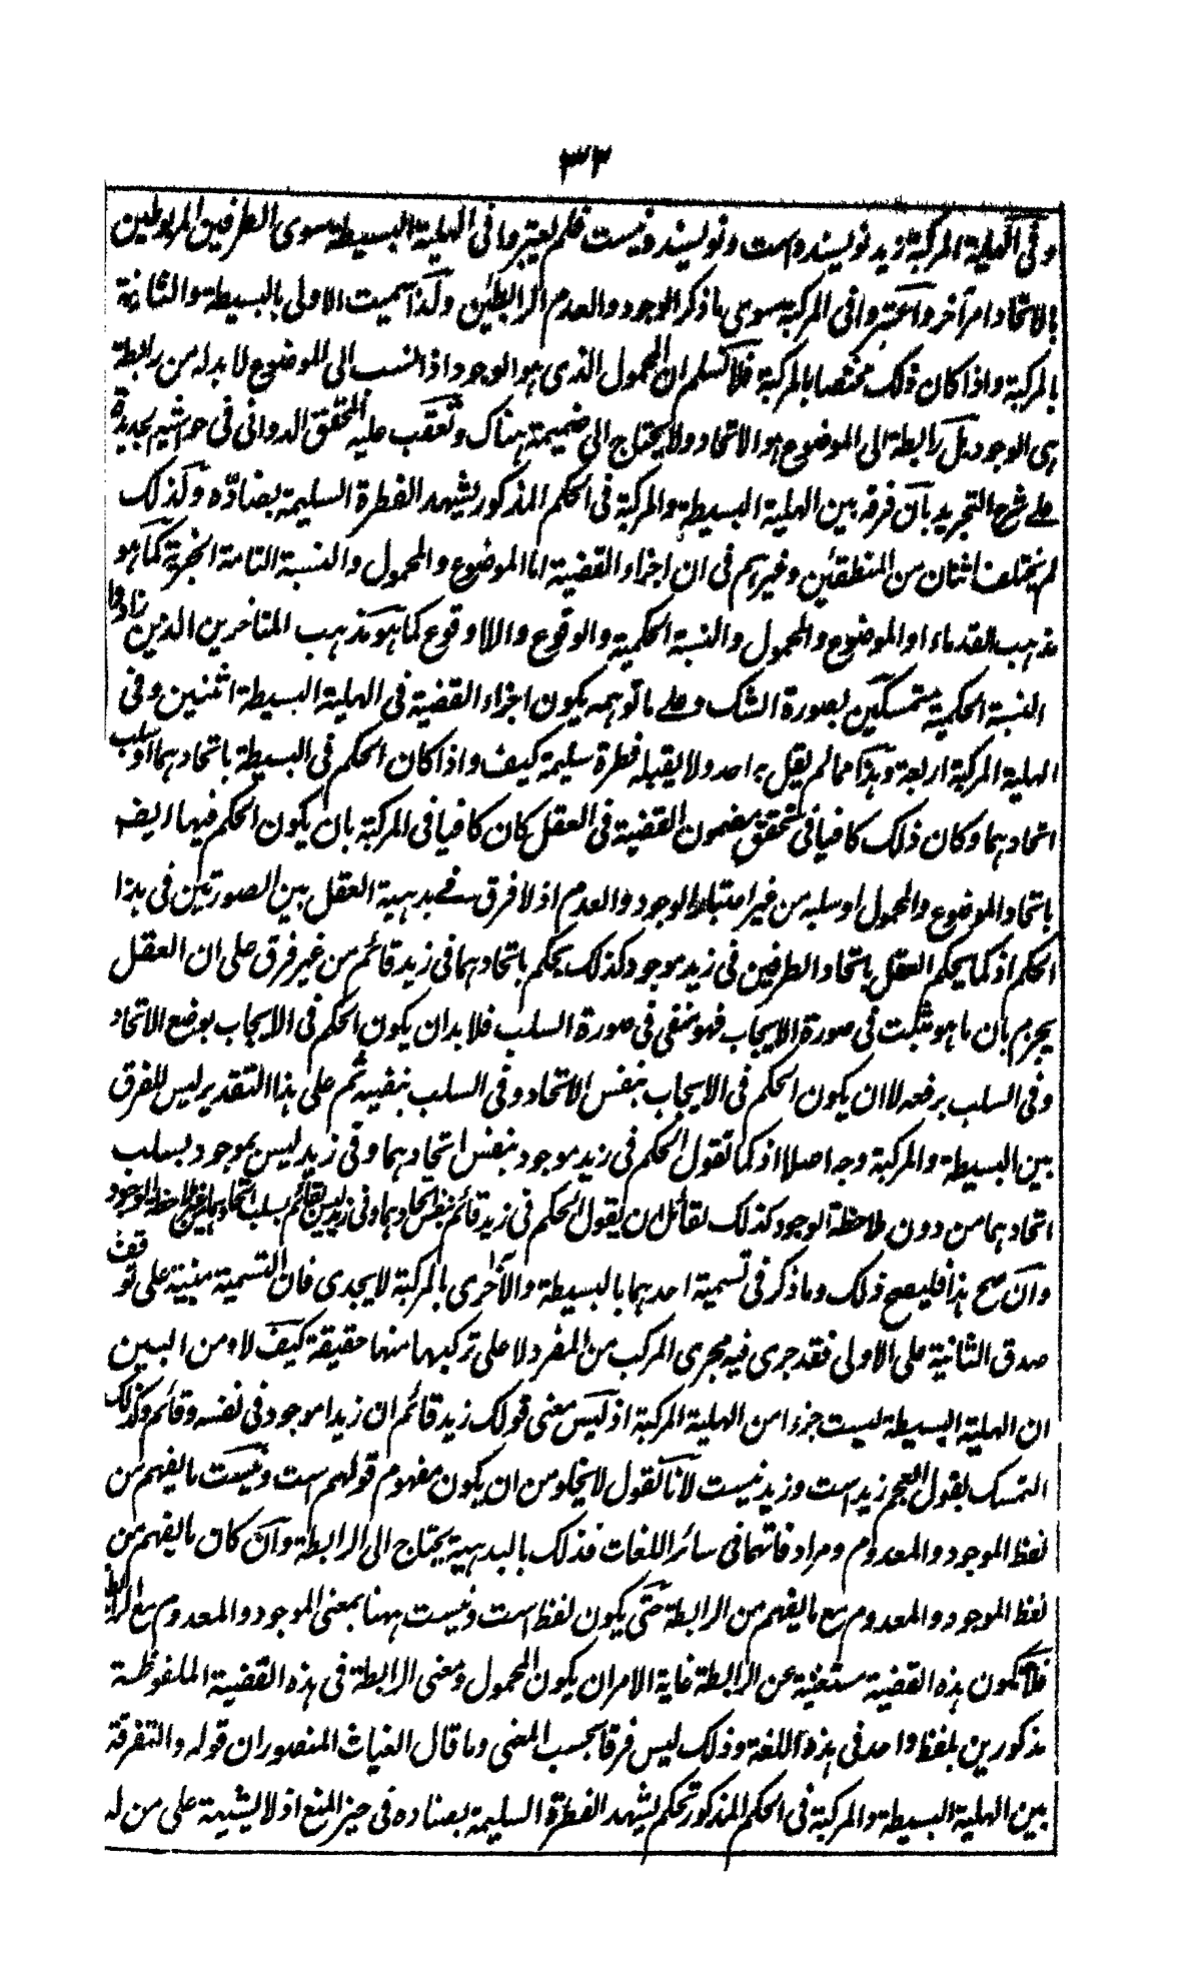 ٣٣
وفى الهلية المركبة زيد نويسنده است ونويسنده نيست فلم يعتبروا فى الهلية البسيطة سوى الطرفين المربوطين
بالاتحاد امرا آخر واعتبروا فى المركبة سوى ما ذكر الوجود والعدم الرابطين ولذا سميت الاولى بالبسيطة والثانية
بالمركبة واذا كان ذلك مختصا بالمركبة فلا نسلم ان المحمول الذى هو الوجود اذا انسب الى الموضوع لا بد له من رابطة
هى الوجود بل رابطة الى الموضوع هو الاتحاد ولا يحتاج الى ضميمة هناك وتعقب عليه المحقق الدوانى فى حواشيه الجديدة
على شرح التجريد بان فرقه بين الهلية البسيطة والمركبة فى الحكم المذكور يشهد الفطرة السليمة بضادّه وكذلك
لم يختلف اثنان من المنطقيين وغيرهم فى ان اجزاء القضية اما الموضوع والمحمول والنسبة التامة الخبرية كما هو
مذهب القدماء او الموضوع والمحمول والنسبة الحكمية والوقوع واللا وقوع كما هو مذهب المتاخرين الذين زادوا
النسبة الحكمية متمسكين بصورة الشك وعلى ما توهمه يكون اجزاء القضية فى الهلية البسيطة اثنين وفى
الهلية المركبة اربعة وهذا مما لم يقل به احد ولا يقبله فطرة سليمة كيف واذا كان الحكم فى البسيطة باتحادهما او سلب
اتحادهما وكان ذلك كافيا فى تحقق مضمون القضية فى العقل كان كافيا فى المركبة بان يكون الحكم فيها ايضا
باتحاد الموضوع والمحمول او سلبه من غير اعتبار الوجود والعدم اذ لا فرق فى بديهية العقل بين الصورتين فى هذا
الحكم اذ كما يحكم العقل باتحاد الطرفين فى زيد موجود كذلك يحكم باتحادهما فى زيد قائم من غير فرق على ان العقل
يجزم بان ما هو مثبت فى صورة الايجاب فهو منفى فى صورة السلب فلا بد ان يكون الحكم فى الايجاب بوضع الاتحاد
وفى السلب برفعه لا ان يكون الحكم فى الايجاب بنفس الاتحاد وفى السلب بنفيه ثم على هذا التقدير ليس للفرق
بين البسيطة والمركبة وجه اصلا اذ كما تقول الحكم فى زيد موجود بنفس اتحادهما وفى زيد ليس بموجود بسلب
اتحادهما من دون ملاحظة الوجود كذلك لقائل ان يقول الحكم فى زيد قائم بنفس اتحادهما وفى زيد ليس بقائم بسلب اتحادهما من غير ملاحظة الوجود
وان صح هذا فليصح ذلك وما ذكر فى تسمية احدهما بالبسيطة والاخرى بالمركبة لا يجدى فان التسمية مبنية على توقف
صدق الثانية على الاولى فقد جرى فيه مجرى المركب من المفرد لا على تركبها منها حقيقة كيف لا ومن البين
ان الهلية البسيطة ليست جزءا من الهلية المركبة اذ ليس معنى قولك زيد قائم ان زيدا موجود فى نفسه وقائم وكذلك
التمسك بقول العجم زيد است وزيد نيست لانا نقول لا يخلو من ان يكون مفهوم قولهم است ونيست ما يفهم من
لفظ الموجود والمعدوم ومرادفاتهما فى سائر اللغات فذلك بالبديهية يحتاج الى الرابطة وان كان ما يفهم من
لفظ الموجود والمعدوم مع ما يفهم من الرابطة حتى يكون لفظ است ونيست ههنا بمعنى الموجود والمعدوم مع الرابطة
فلا تكون هذه القضية مستغنية عن الرابطة غاية الامر ان يكون المحمول ومعنى الرابطة فى هذه القضية الملفوظة
مذكورين بلفظ واحد فى هذه اللغة وذلك ليس فرقا بحسب المعنى وما قال الغياث المنصور ان قوله والتفرقة
بين الهلية البسيطة والمركبة فى الحكم المذكور تحكم يشهد الفطرة السليمة بضاده فى حيز المنع اذ لا يشبه على من له